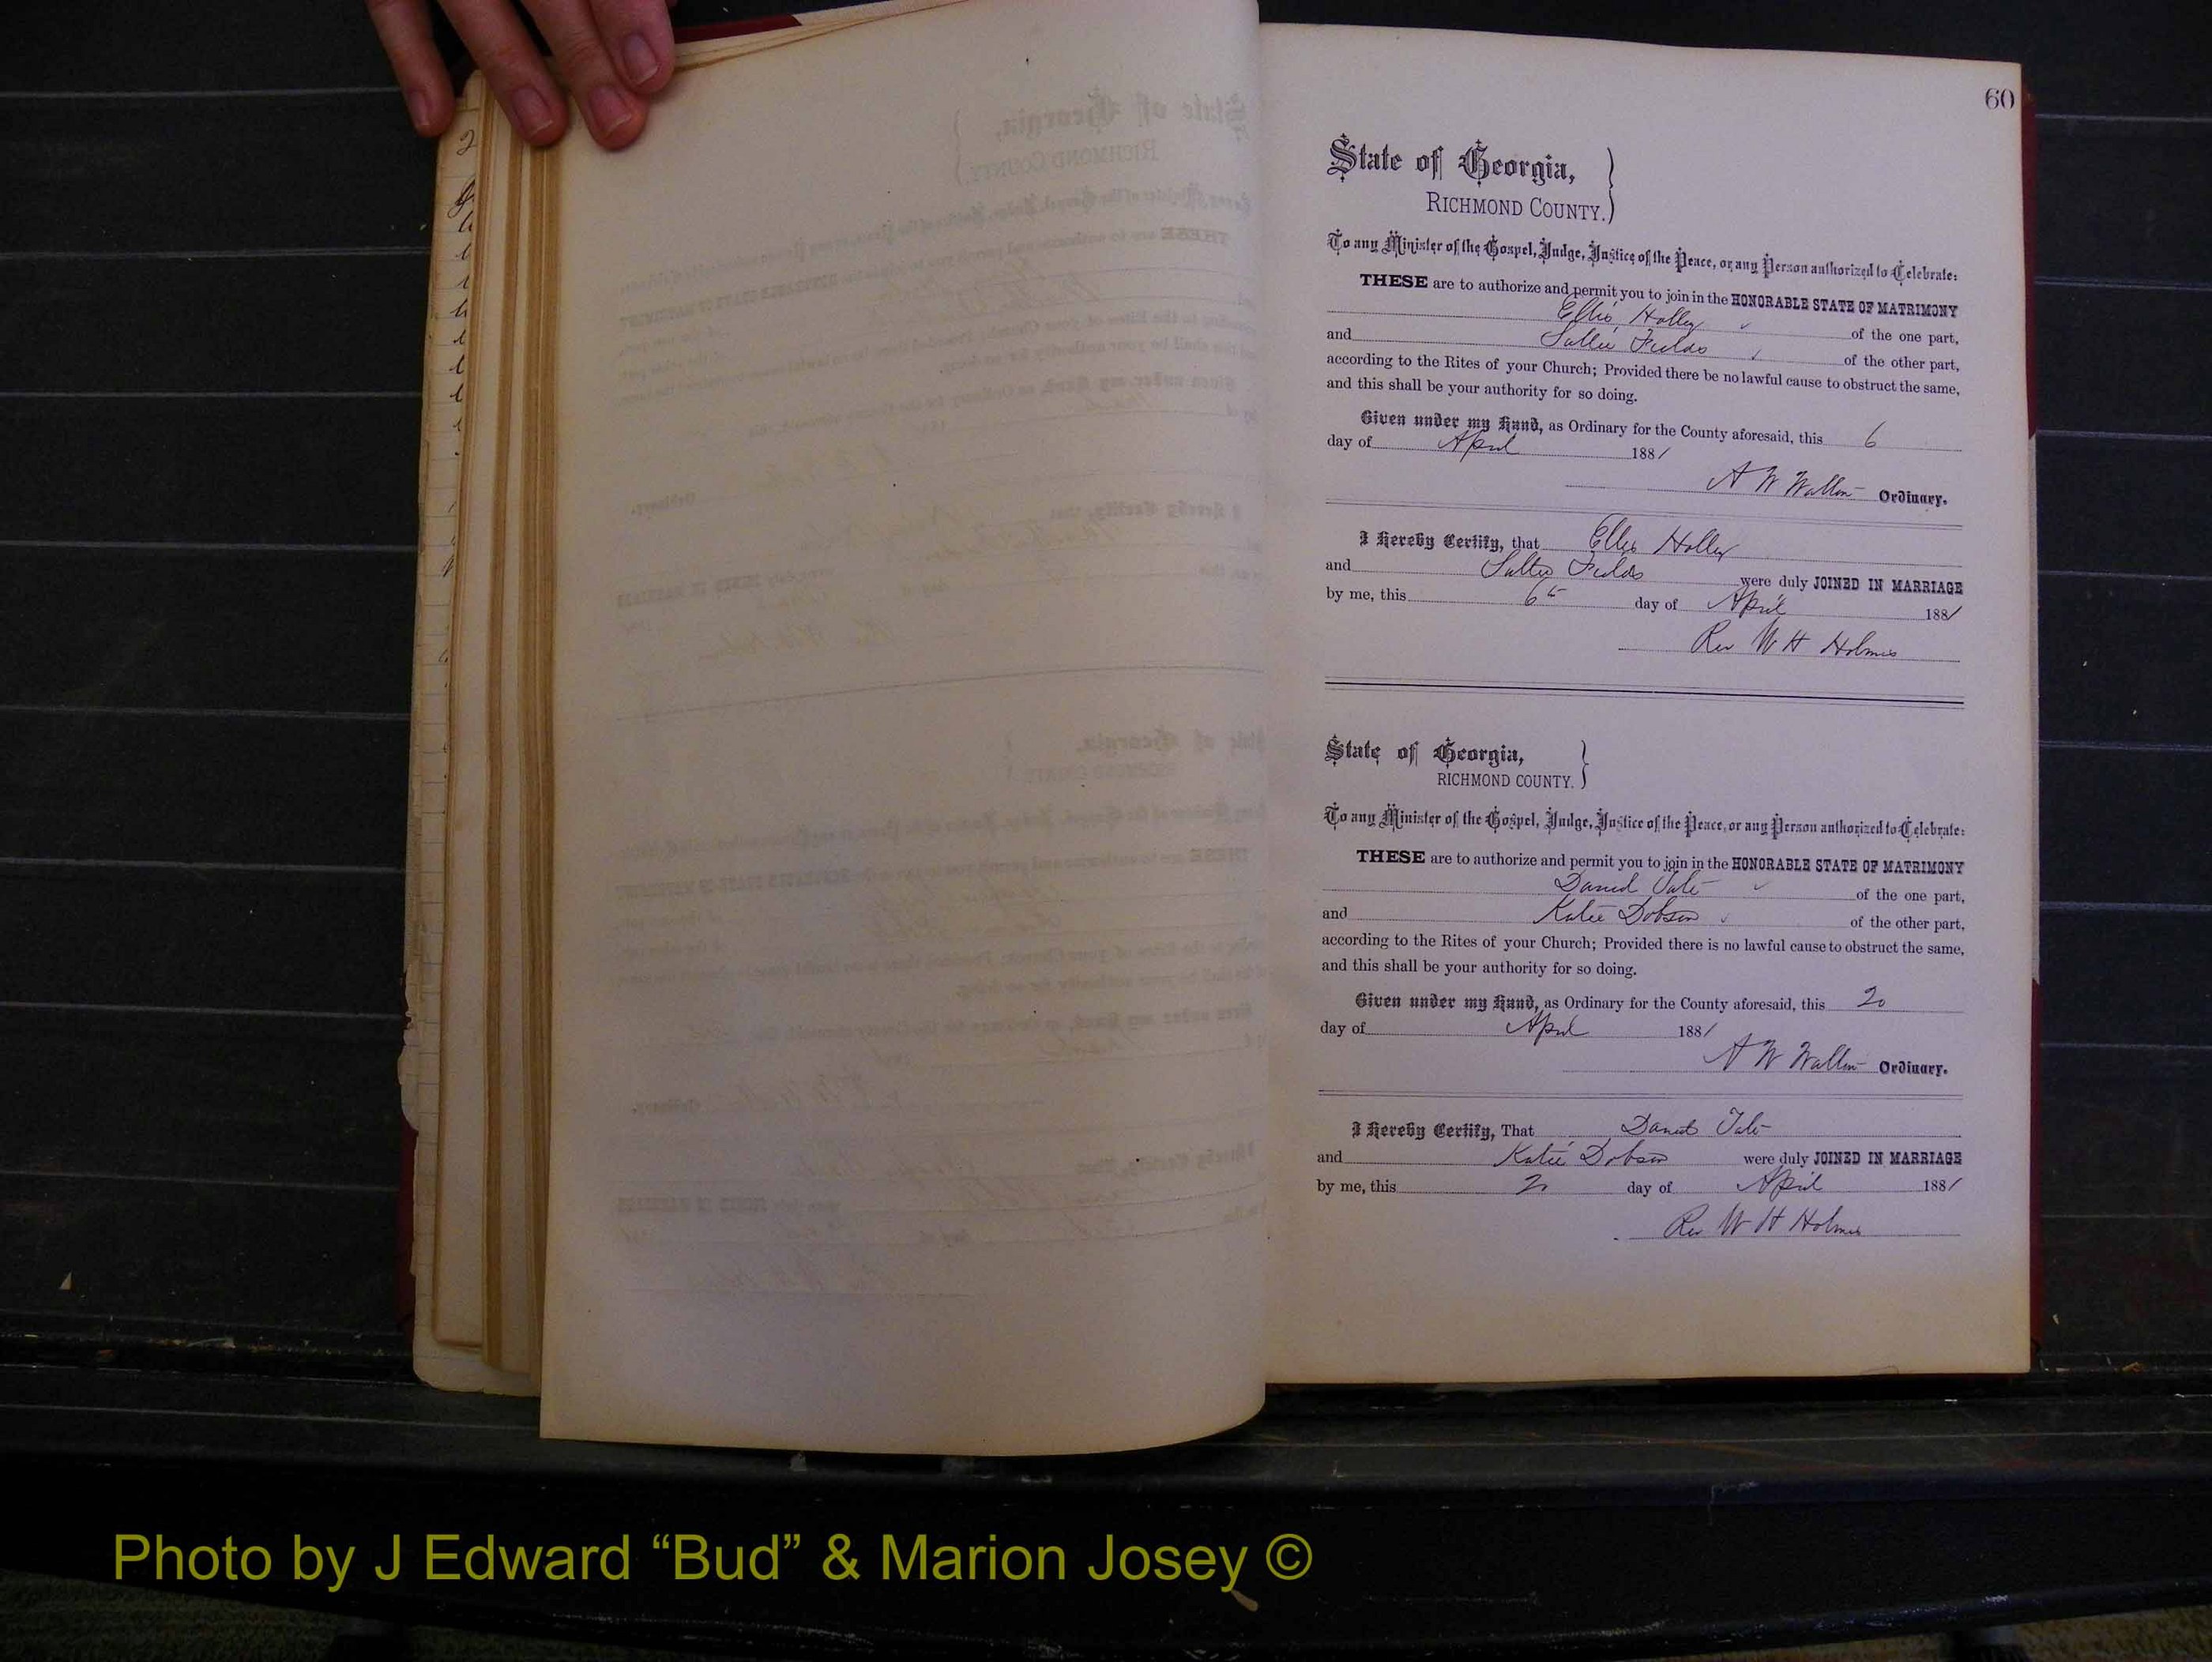 60
State of Georgia,
RICHMOND COUNTY.
To any Minister of the Gospel, Judge, Justice of the Peace, or any Person authorized to Celebrate:
THESE are to authorize and permit you to join in the HONORABLE STATE OF MATRIMONY
Ellis Holley of the one part,
and Sallie Fields of the other part,
according to the Rites of your Church; Provided there be no lawful cause to obstruct the same,
and this shall be your authority for so doing.
Given under my Hand, as Ordinary for the County aforesaid, this 6
day of April 1881
A W Walton Ordinary.
I Hereby Certify, that Ellis Holley
and Sallie Fields were duly JOINED IN MARRIAGE
by me, this 6th day of April 1881
Rev W H Holmes
State of Georgia,
RICHMOND COUNTY.
To any Minister of the Gospel, Judge, Justice of the Peace, or any Person authorized to Celebrate:
THESE are to authorize and permit you to join in the HONORABLE STATE OF MATRIMONY
Daniel Tate of the one part,
and Katie Dobson of the other part,
according to the Rites of your Church; Provided there is no lawful cause to obstruct the same,
and this shall be your authority for so doing.
Given under my Hand, as Ordinary for the County aforesaid, this 20
day of April 1881
A W Walton Ordinary.
I Hereby Certify, That Daniel Tate
and Katie Dobson were duly JOINED IN MARRIAGE
by me, this 20 day of April 1881
Rev W H Holmes
Photo by J Edward “Bud” & Marion Josey ©